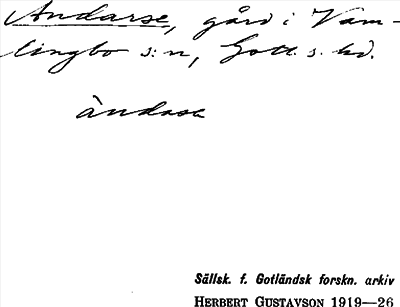 Andarse, gård i Vam-
lingbo s:n, Gotl. s. hd.
àndasa
Sällsk. f. Gotländsk forskn. arkiv
HERBERT GUSTAVSON 1919—26